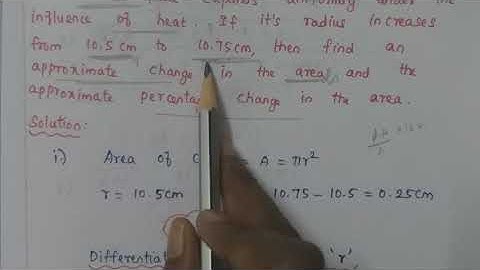 expands uniformly under the
influence of heat. If it's radius increases
from 10.5 cm to 10.75cm, then find an
approximate change in the area and the
approximate percentage change in the area.
Solution:
i) Area of = A = πr²
r = 10.5cm 10.75 - 10.5 = 0.25cm
'r',